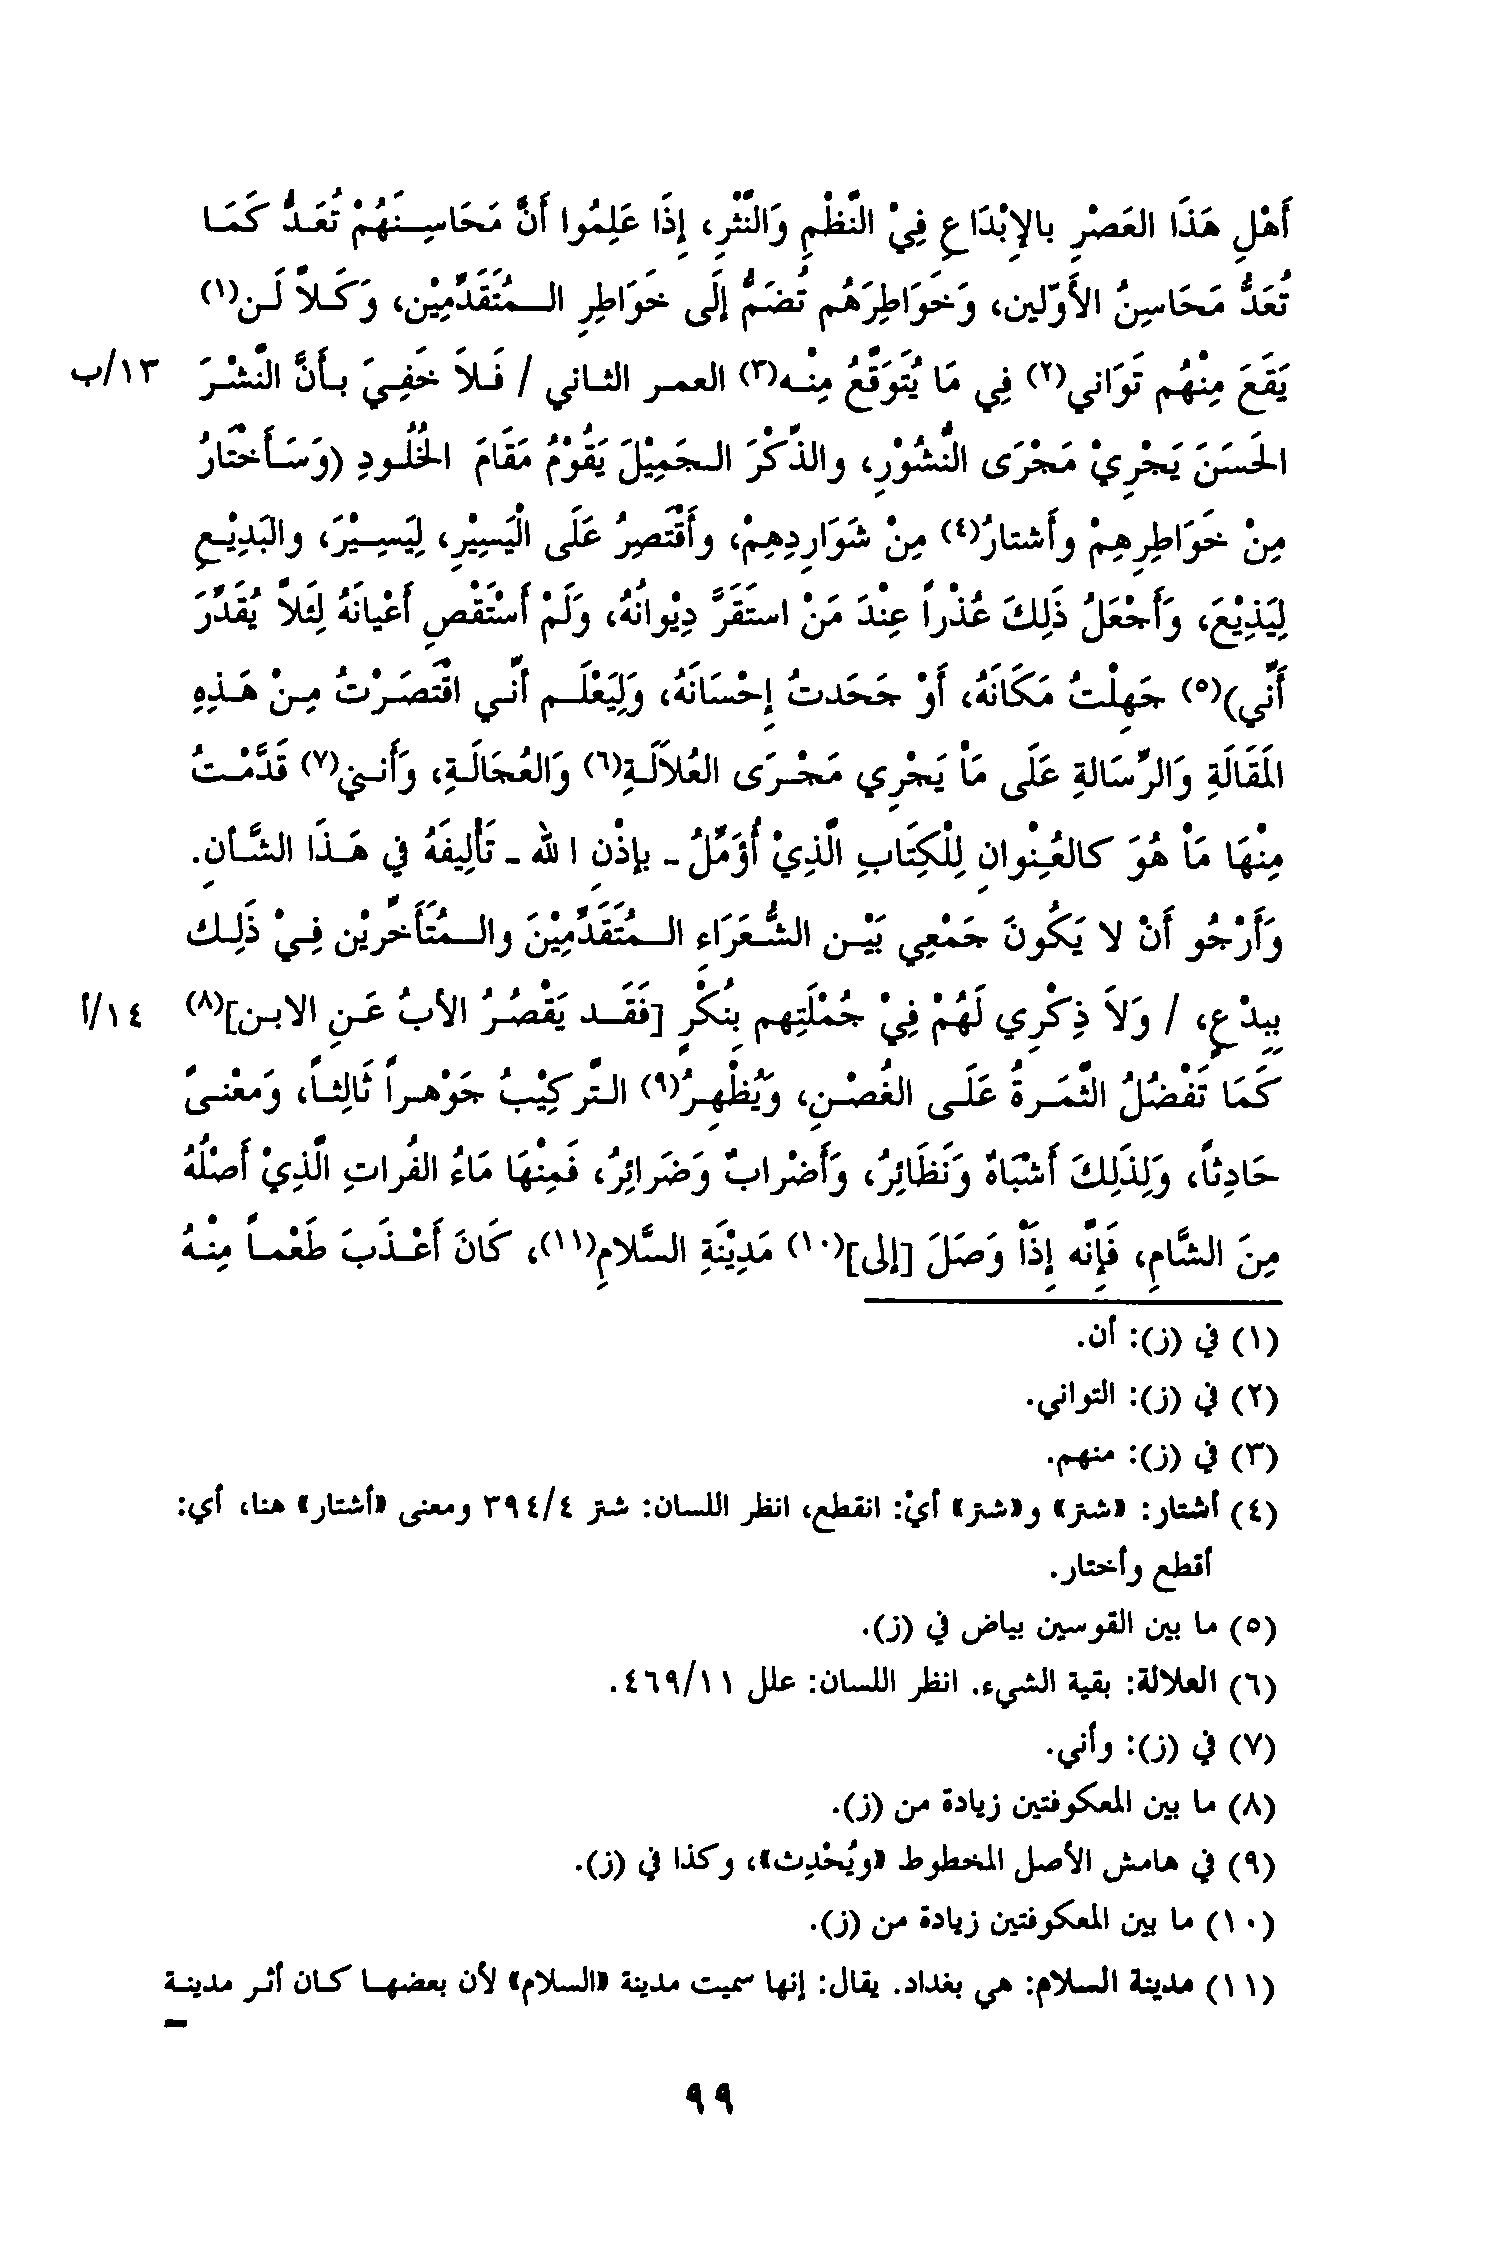 أَهْلِ هَذَا العَصْرِ بالإِبْدَاعِ فِيْ النَّظْمِ وَالنَّثْرِ، إِذَا عَلِمُوا أَنَّ مَحَاسِنَهُمْ تُعَدُّ كَمَا
تُعَدُّ مَحَاسِنُ الأَوّلين، وَخَوَاطِرَهُم تُضَمُّ إلَى خَوَاطِرِ المُتَقَدِّمِيْن، وَكَلاَّ لَن(١)
يَقَعَ مِنْهُم تَوَاني(٢) فِي مَا يُتَوَقَّعُ مِنْه(٣) العمر الثاني / فَلاَ خَفِيَ بأَنَّ النَّشْرَ ١٣/ب
الحَسَنَ يَجْرِيْ مَجْرَى النُّشُوْرِ، والذِّكْرَ الجَمِيْلَ يَقُوْمُ مَقَامَ الخُلُودِ (وَسَأَخْتَارُ
مِنْ خَوَاطِرِهِمْ وأَشتارُ(٤) مِنْ شَوَارِدِهِمْ، وأَقْتَصِرُ عَلَى الْيَسِيْرِ، لِيَسِيْرَ، والبَدِيْعِ
لِيَذِيْعَ، وَأَجْعَلُ ذَلِكَ عُذْراً عِنْدَ مَنْ استَقَرَّ دِيْوانَهُ، وَلَمْ أَسْتَقْصِ أَعْيانَهُ لِئَلاَّ يُقَدِّرَ
أَنِّي)(٥) جَهِلْتُ مَكَانَهُ، أَوْ جَحَدتُ إِحْسَانَهُ، وَلِيَعْلَم أنّي اقْتَصَرْتُ مِنْ هَذِهِ
المَقَالَةِ وَالرِّسَالةِ عَلَى مَاْ يَجْرِي مَجْرَى العُلاَلَةِ(٦) وَالعُجَالَةِ، وَأَنني(٧) قَدَّمْتُ
مِنْهَا مَاْ هُوَ كالعُنْوانِ لِلْكِتَابِ الَّذِيْ أُؤَمِّلُ - بإذْنِ الله - تَأْلِيفَهُ في هَذَا الشَّأنِ.
وَأَرْجُو أَنْ لا يَكُونَ جَمْعِي بَيْن الشُّعَرَاءِ المُتَقَدِّمِيْنَ والمُتَأَخِّرِيْن فِيْ ذَلِك
بِبِدْعٍ، / وَلاَ ذِكْرِي لَهُمْ فِيْ جُمْلَتِهم بِنُكْرٍ [فَقَد يَقْصُرُ الأبُ عَنِ الابن](٨) ١٤/أ
كَمَا تَفْضُلُ الثَّمَرةُ عَلَى الغُصْنِ، وَيُظْهِرُ(٩) التَّركِيْبُ جَوْهراً ثَالِثاً، وَمعْنىً
حَادِثاً، وَلِذَلِكَ أَشْبَاهٌ وَنَظَائِرُ، وَأَضْرابٌ وَضَرائِرُ، فَمِنْهَا مَاءُ الفُراتِ الَّذِيْ أَصْلُهُ
مِنَ الشَّامِ، فَإنَّه إِذَاْ وَصَلَ [إلى](١٠) مَدِيْنَةِ السَّلامِ(١١)، كَانَ أَعْذَبَ طَعْماً مِنْهُ
(١) في (ز): أن.
(٢) في (ز): التواني.
(٣) في (ز): منهم.
(٤) أشتار: «شتر» و«شتر» أيْ: انقطع، انظر اللسان: شتر ٣٩٤/٤ ومعنى «أشتار» هنا، أي:
أقطع وأختار.
(٥) ما بين القوسين بياض في (ز).
(٦) العلالة: بقية الشيء. انظر اللسان: علل ٤٦٩/١١.
(٧) في (ز): وأني.
(٨) ما بين المعكوفتين زيادة من (ز).
(٩) في هامش الأصل المخطوط «ويُحْدِث»، وكذا في (ز).
(١٠) ما بين المعكوفتين زيادة من (ز).
(١١) مدينة السلام: هي بغداد. يقال: إنها سميت مدينة «السلام» لأن بعضها كان أثر مدينة
=
٩٩